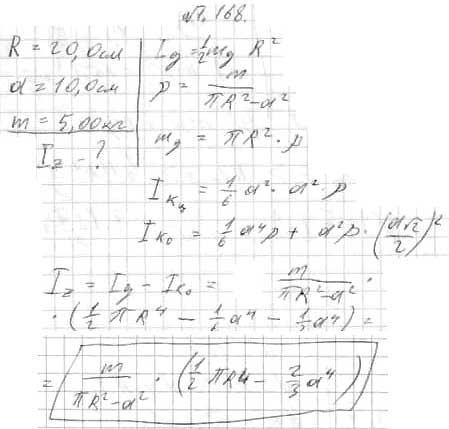 №1.168.
R = 20,0см
a = 10,0см
m = 5,00кг
I_z - ?
I_g = 1/2 m_g R²
ρ = m / (πR² - a²)
m_g = πR² · ρ
I_кц = 1/6 a² · a² · ρ
I_к0 = 1/6 a⁴ρ + a²ρ · (a√2 / 2)²
I_z = I_g - I_к0 = m / (πR² - a²) ·
· (1/2 πR⁴ - 1/6 a⁴ - 1/2 a⁴) =
= m / (πR² - a²) · (1/2 πR4 - 2/3 a⁴)